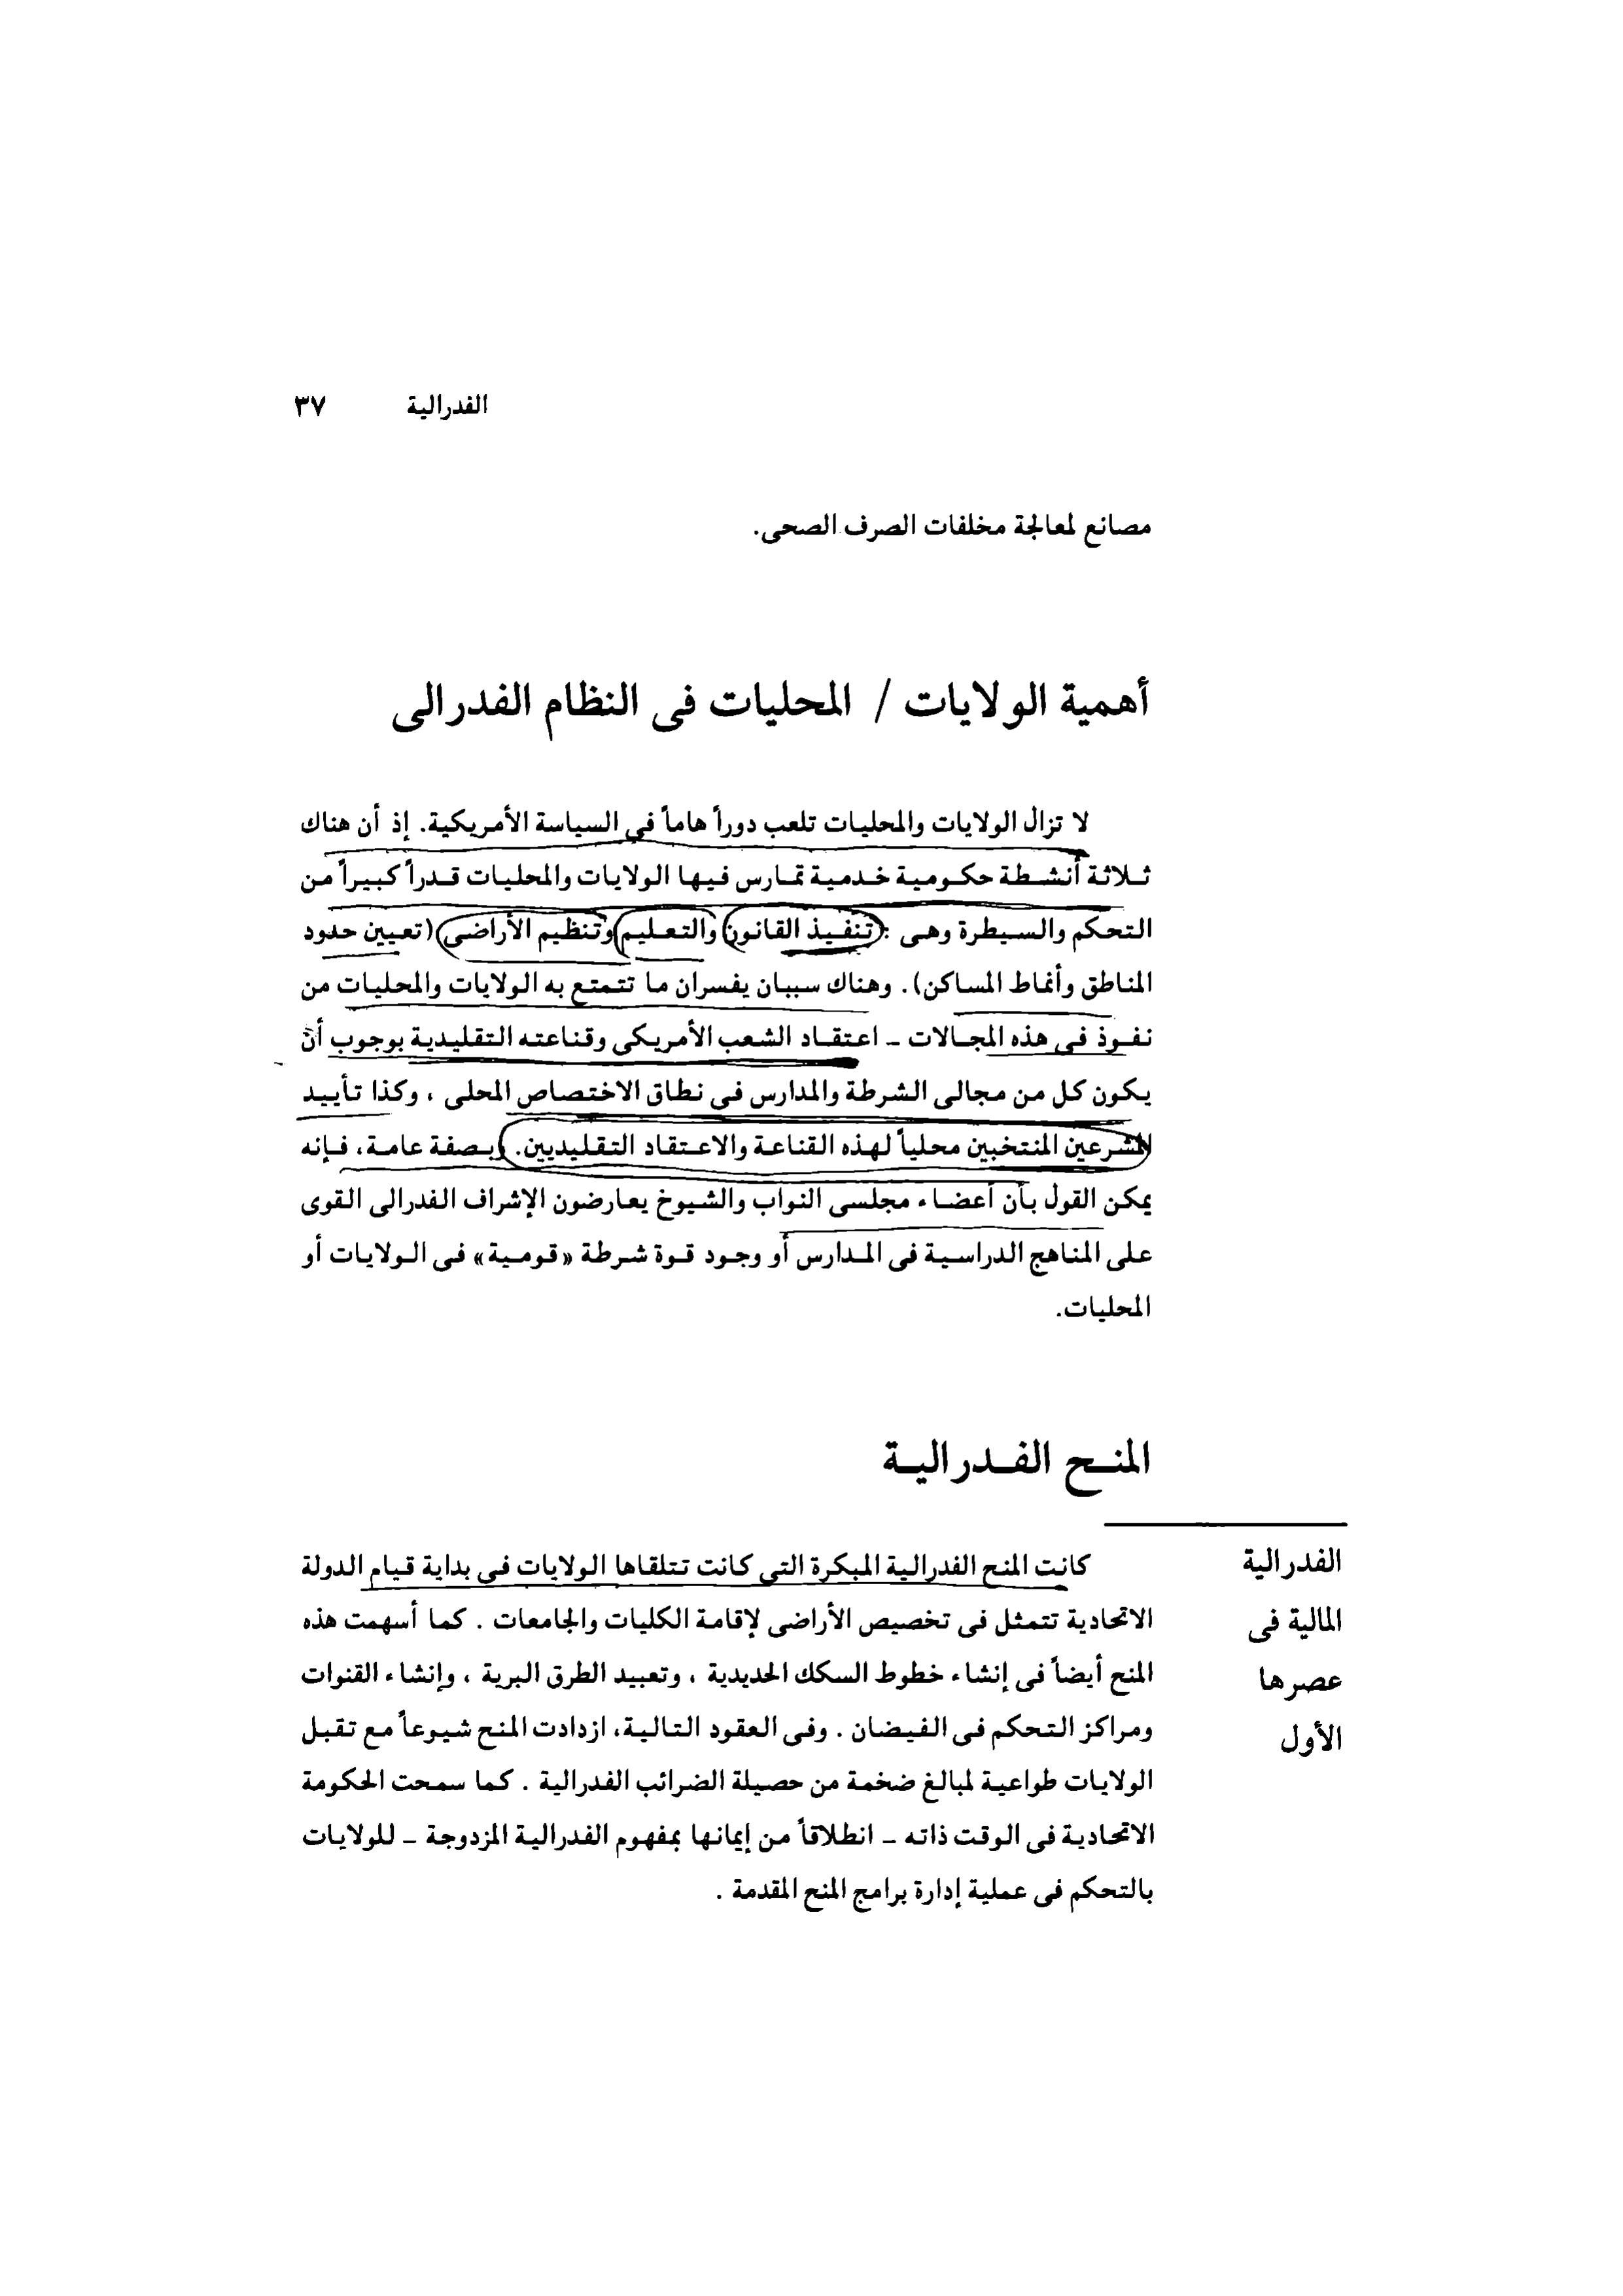 الفدرالية ٣٧
مصانع لمعالجة مخلفات الصرف الصحى.
أهمية الولايات / المحليات فى النظام الفدرالى
لا تزال الولايات والمحليات تلعب دوراً هاماً فى السياسة الأمريكية. إذ أن هناك
ثلاثة أنشطة حكومية خدمية تمارس فيها الولايات والمحليات قدراً كبيراً من
التحكم والسيطرة وهى : تنفيذ القانون والتعليم وتنظيم الأراضى (تعيين حدود
المناطق وأنماط المساكن). وهناك سببان يفسران ما تتمتع به الولايات والمحليات من
نفوذ فى هذه المجالات – اعتقاد الشعب الأمريكى وقناعته التقليدية بوجوب أن
يكون كل من مجالى الشرطة والمدارس فى نطاق الاختصاص المحلى ، وكذا تأييد
المشرعين المنتخبين محلياً لهذه القناعة والاعتقاد التقليديين. وبصفة عامة، فإنه
يمكن القول بأن أعضاء مجلسى النواب والشيوخ يعارضون الإشراف الفدرالى القوى
على المناهج الدراسية فى المدارس أو وجود قوة شرطة «قومية» فى الولايات أو
المحليات.
المنح الفدرالية
الفدرالية
المالية فى
عصرها
الأول
كانت المنح الفدرالية المبكرة التى كانت تتلقاها الولايات فى بداية قيام الدولة
الاتحادية تتمثل فى تخصيص الأراضى لإقامة الكليات والجامعات . كما أسهمت هذه
المنح أيضاً فى إنشاء خطوط السكك الحديدية ، وتعبيد الطرق البرية ، وإنشاء القنوات
ومراكز التحكم فى الفيضان . وفى العقود التالية، ازدادت المنح شيوعاً مع تقبل
الولايات طواعية لمبالغ ضخمة من حصيلة الضرائب الفدرالية . كما سمحت الحكومة
الاتحادية فى الوقت ذاته – انطلاقاً من إيمانها بمفهوم الفدرالية المزدوجة – للولايات
بالتحكم فى عملية إدارة برامج المنح المقدمة .